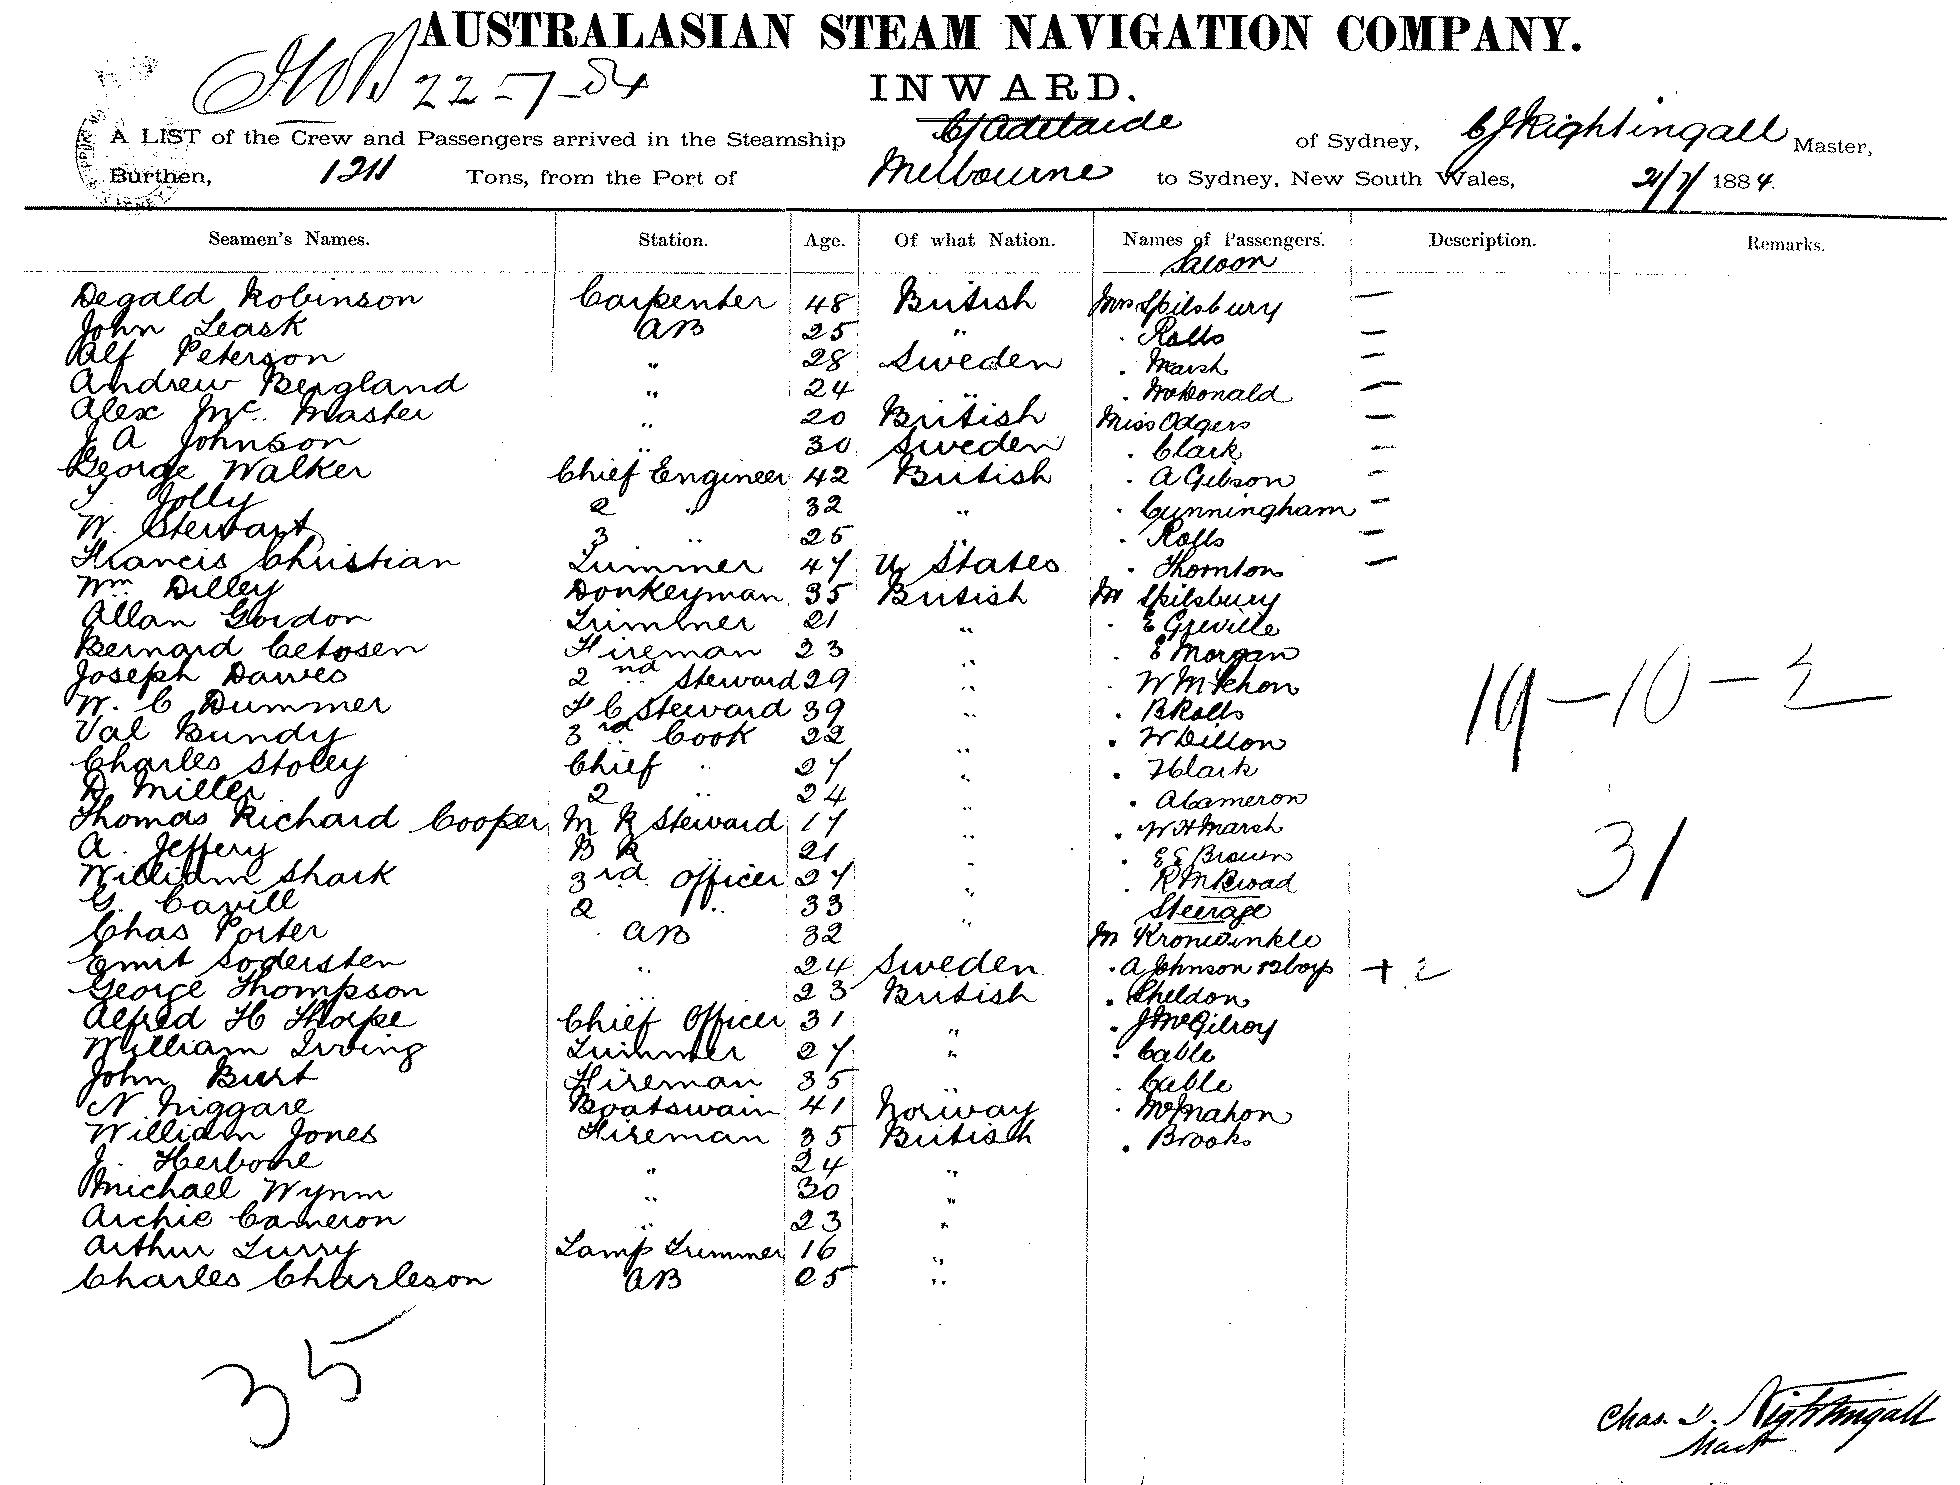 AUSTRALASIAN STEAM NAVIGATION COMPANY.
22-7-84
INWARD.
A LIST of the Crew and Passengers arrived in the Steamship C/Adelaide of Sydney, CJ Nightingall Master,
Burthen, 1211 Tons, from the Port of Melbourne to Sydney, New South Wales, 21/7/1884.
Seamen's Names. Station. Age. Of what Nation. Names of Passengers. Description. Remarks.
Saloon
Degald Robinson Carpenter 48 British Mrs Spilsbury —
John Leask AB 25 " . Rolls —
Alf Peterson " 28 Sweden . Marsh —
Andrew Bergland " 24 " . McDonald —
Alex Mc. Master " 20 British Miss Odgers —
J A Johnson " 30 Sweden . Clark —
George Walker Chief Engineer 42 British . A Gibson —
Jolly 2 " 32 " . Cunningham —
W. Stewart 3 " 25 " . Rolls —
Francis Christian Trimmer 47 U States . Thornton —
Wm Dilley Donkeyman 35 British Mr Spilsbury
Allan Gordon Trimmer 21 " . E Greville
Bernard Cetosen Fireman 23 " . E Morgan
Joseph Dawes 2nd Steward 29 " . W
W. C Dummer F C Steward 39 " . B Rolls
Val Bundy 3rd Cook 22 " . W Dillon
Charles Stoley Chief " 27 " . Clark
D Miller 2 " 24 " . A Cameron
Thomas Richard Cooper M R Steward 17 " . W H Marsh
A. Jeffery B R " 21 " . E E Brown
William Shark 3rd Officer 27 " . R
G. Cavill 2 " 33 " Steerage
Chas Porter AB 32 Mr Kronwinkle
Emit Sodersten " 24 Sweden . A Johnson & 2 boys + 2
George Thompson " 23 British . Sheldon
Alfred H Thorpe Chief Officer 31 " . J McGilroy
William Irving Trimmer 27 " . Cable
John Burt Fireman 35 " . Cable
N Niggare Boatswain 41 Norway . McMahon
William Jones Fireman 35 British . Brooks
J. Herbone " 24 "
Michael Wynm " 30 "
Archie Cameron " 23 "
Arthur Turry Lamp Trimmer 16 "
Charles Charleson AB 25 "
19-10-2
31
35
Chas. J. Nightingall
Mast